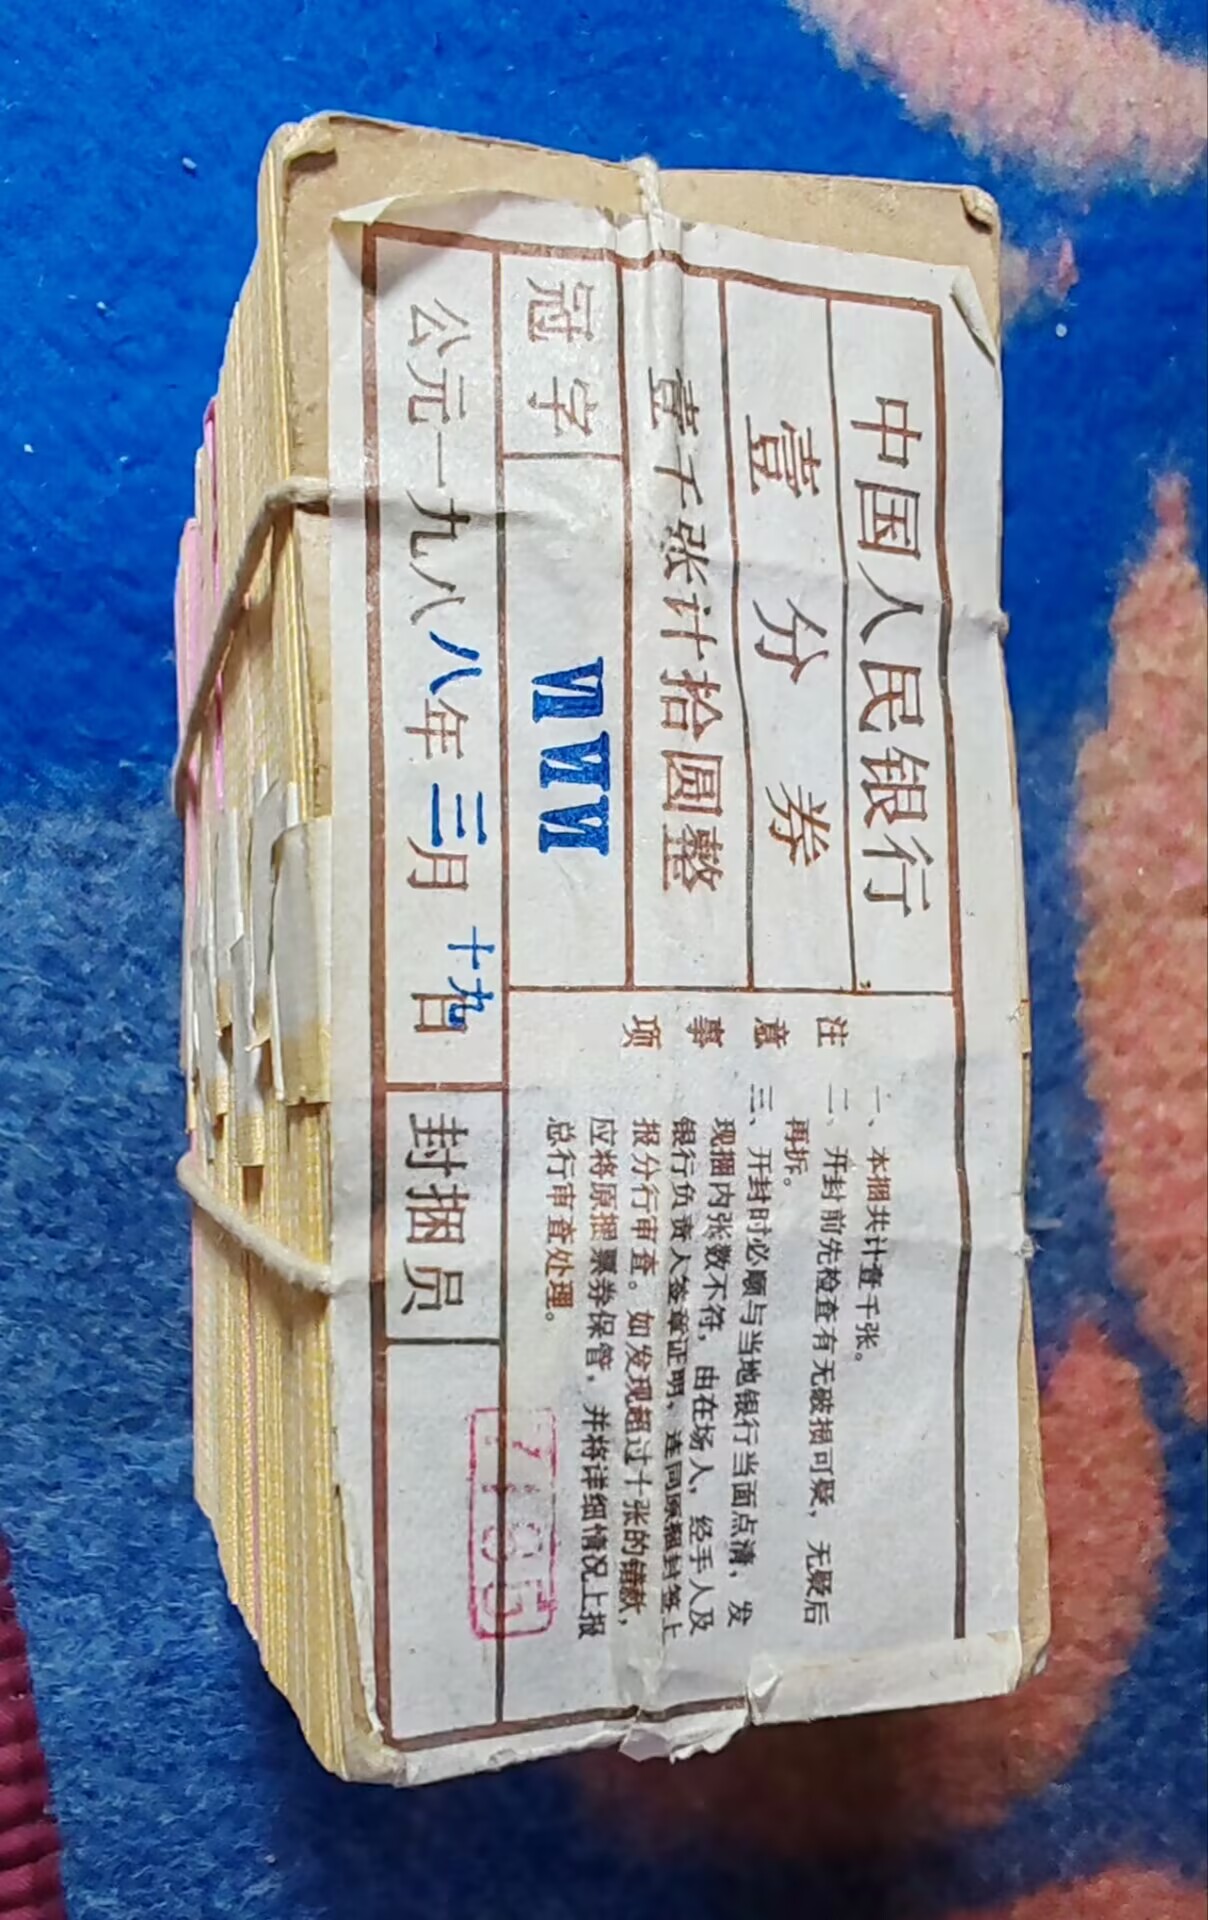 中国人民银行
壹分券
壹千张计拾圆整
冠字 VI VI VI
公元一九八八年三月十九日 封捆员
注意事项
一、本捆共计壹千张。
二、开封前先检查有无破损可疑，无疑后
再拆。
三、开封时必顺与当地银行当面点清，发
现捆内张数不符，由在场人，经手人及
银行负责人签章证明，连同原捆封签上
报分行审查。如发现超过十张的错款，
应将原捆票券保管，并将详细情况上报
总行审查处理。